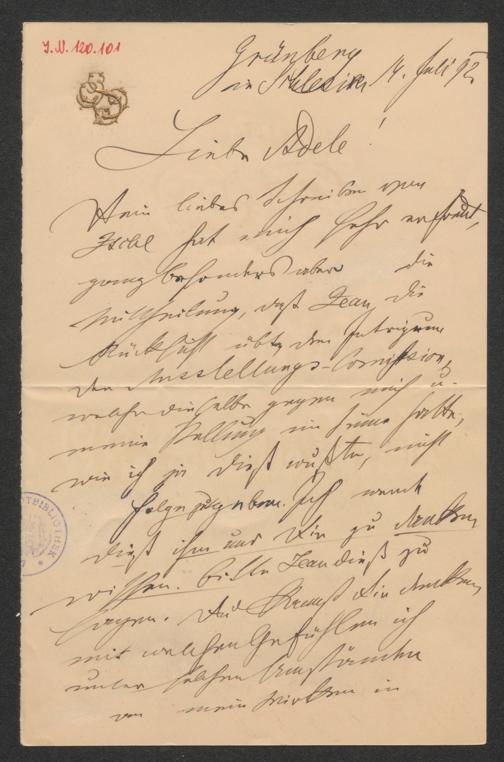 I.N. 120.101
Grünberg
in Schlesien 14. Juli 92
Liebe Adele!
Dein liebes Schreiben von
Ischl hat mich sehr erfreut,
ganz besonders aber die
Mittheilung, daß Jean, die
Rücksicht über den Intriguen
der Ausstellungs-Comission,
welche dieselbe gegen mich u.
meine Stellung im Sinne hatte,
wie ich ja dieß wußte, nicht
Folge zu geben. Ich werde
dieß ihm und Dir zu danken
wissen. bitte Jean dieß zu
sagen. Du kannst Dir denken
mit welchen Gefühlen ich
unter solchen Umständen
an mein Wirken in
BIBLIOTHEK